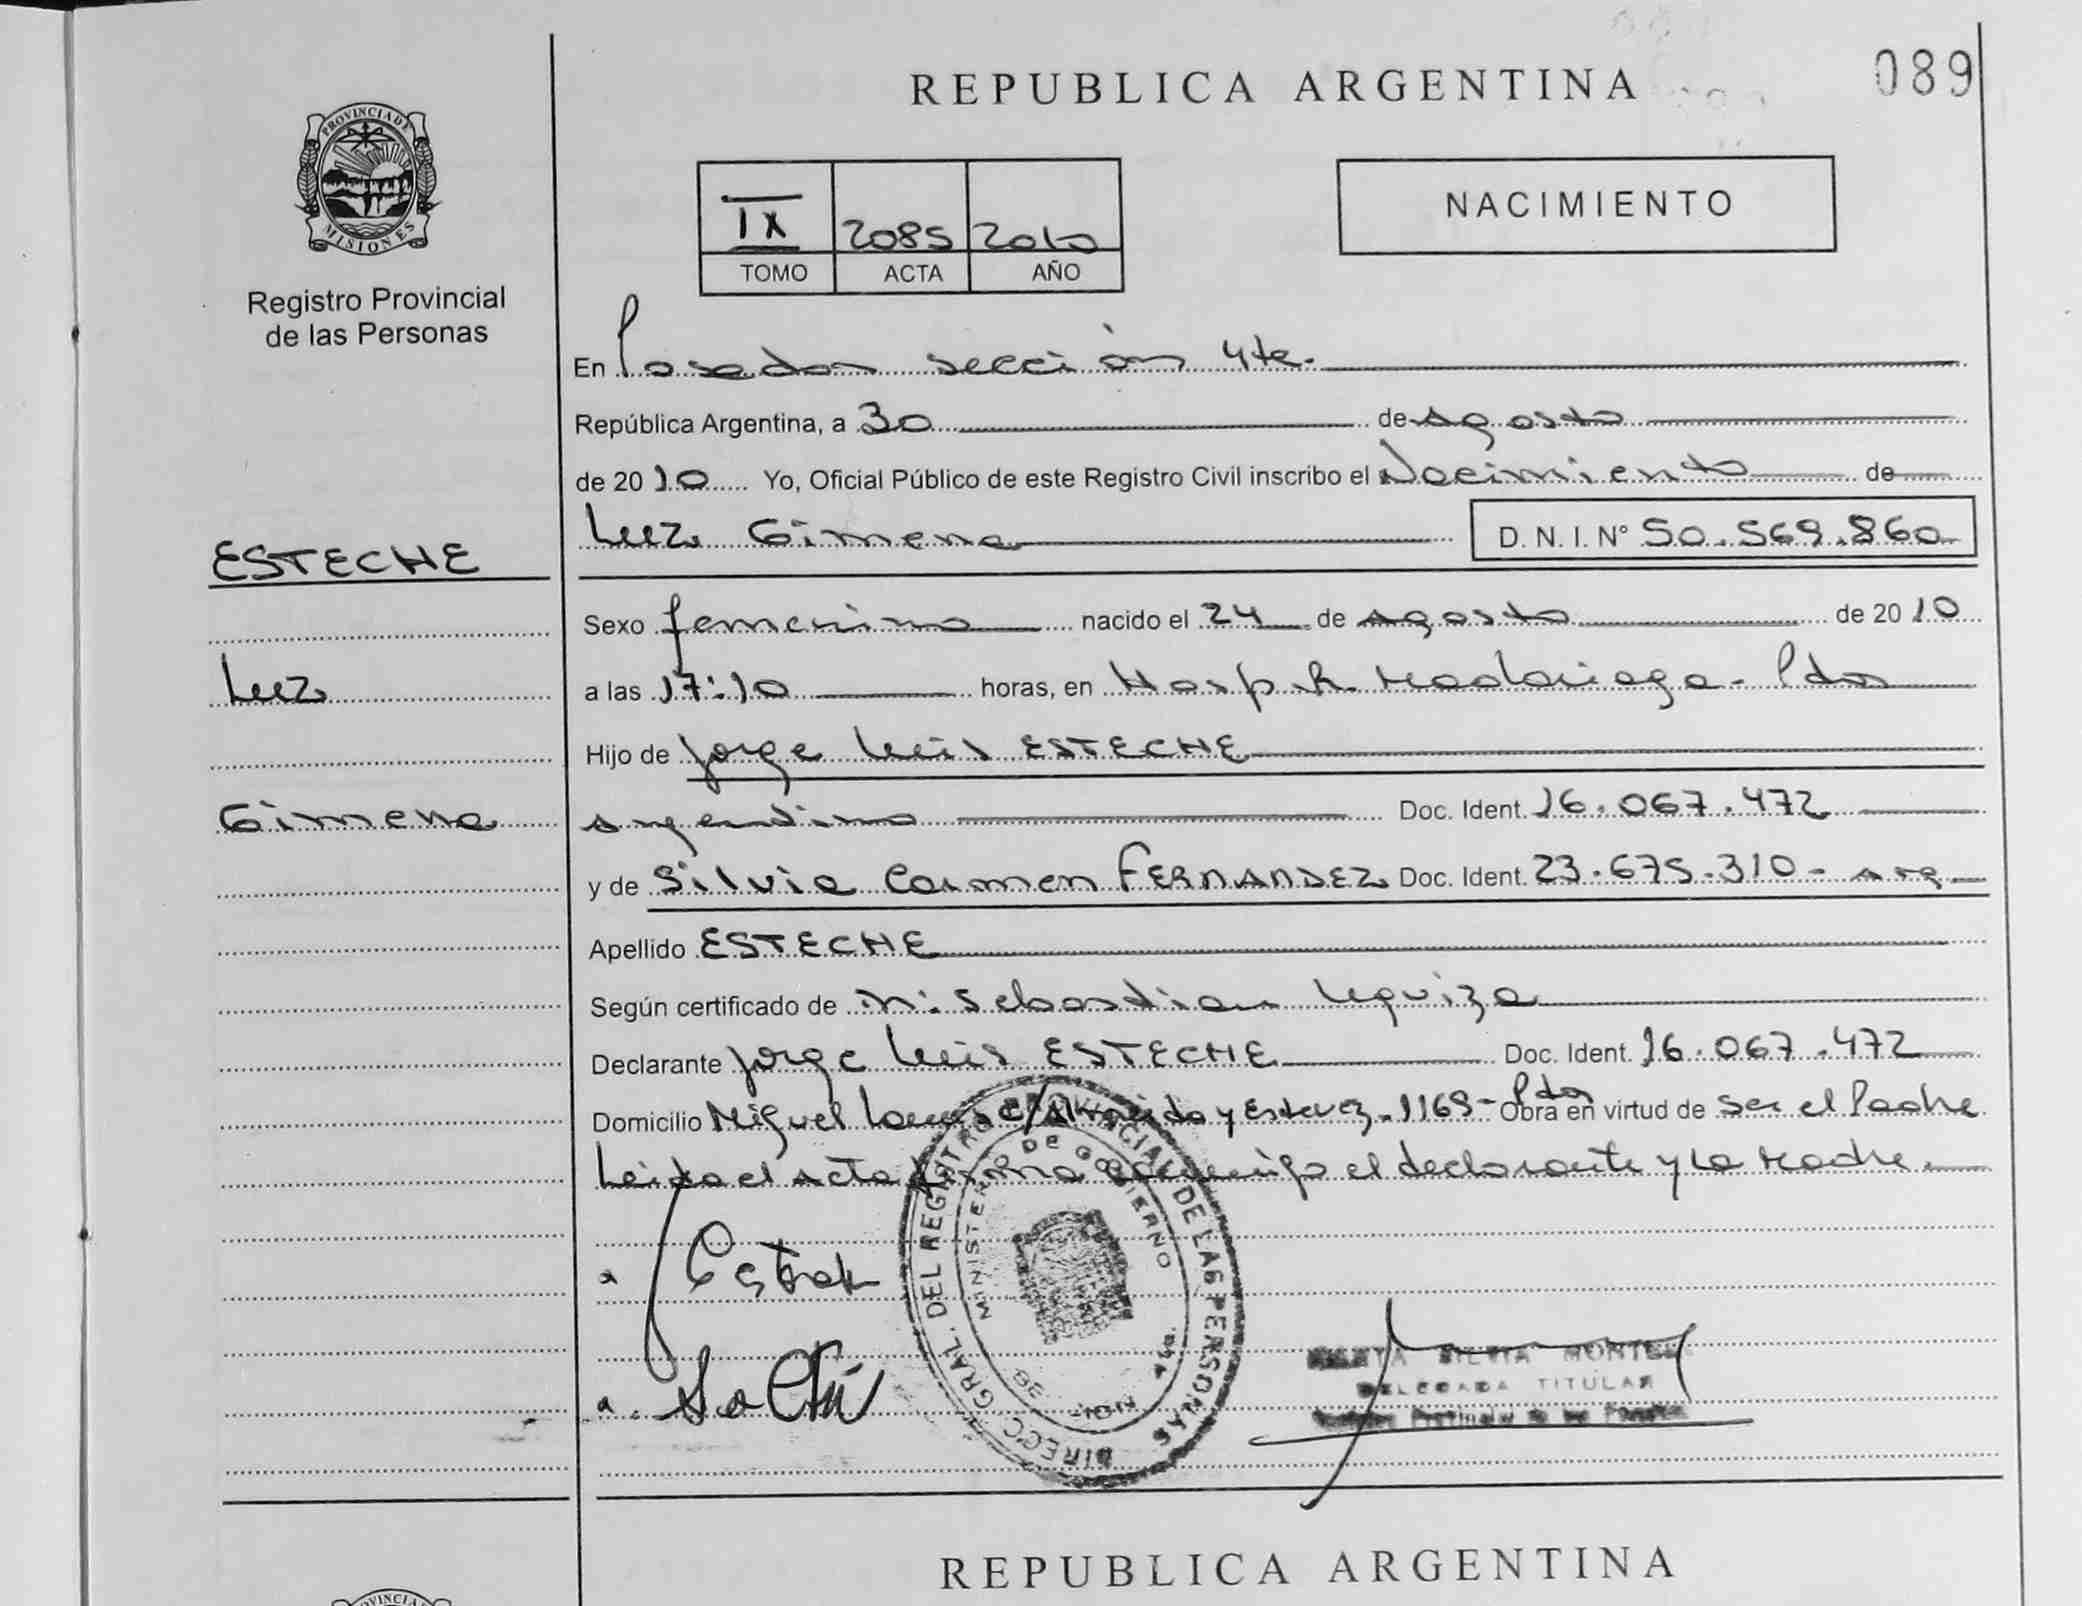 089
REPUBLICA ARGENTINA
PROVINCIA DE
MISIONES
Registro Provincial
de las Personas
IX 2085 2010
TOMO ACTA AÑO
NACIMIENTO
En Posadas sección 4ta.
República Argentina, a 30 de Agosto
de 2010 Yo, Oficial Público de este Registro Civil inscribo el Nacimiento de
Luz Gimena D. N. I. N° 50.569.860
ESTECHE
Sexo femenino nacido el 24 de Agosto de 2010
Luz
a las 17:10 horas, en Hosp. R. Madariaga - Pdas
Hijo de Jorge Luis ESTECHE
Gimena
Argentino Doc. Ident. 16.067.472
y de Silvia Carmen FERNANDEZ Doc. Ident. 23.675.310 - Arg
Apellido ESTECHE
Según certificado de Sebastian Uquiza
Declarante Jorge Luis ESTECHE Doc. Ident. 16.067.472
Domicilio Miguel y Estevez. 1169 - Pdas Obra en virtud de Ser el Padre
Leida el Acta firma conmigo el declarante y La Madre.
DIRECC. GRAL. DEL REGISTRO PROVINCIAL DE LAS PERSONAS
MINISTERIO DE GOBIERNO
SILVIA MONTIEL
DELEGADA TITULAR
REPUBLICA ARGENTINA